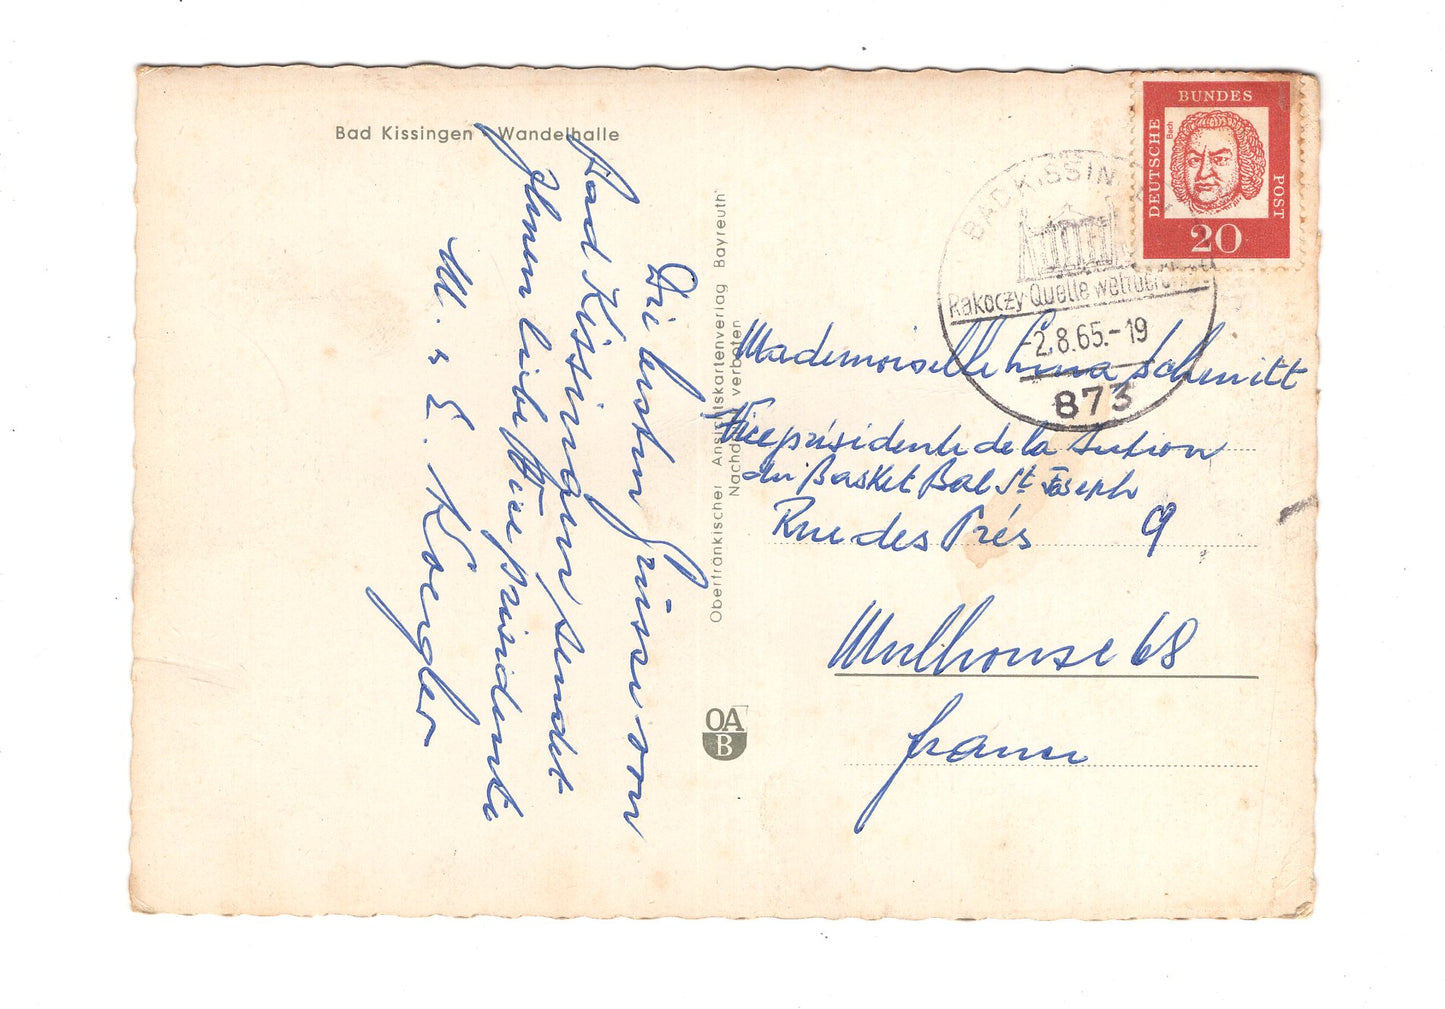 Bad Kissingen - Wandelhalle
DEUTSCHE BUNDES POST
Bach
20
BAD KISSIN
Rakoczy-Quelle weltber
-2.8.65.-19
873
Die besten Grüsse von
Bad Kissingen sendet
Ihnen liebe Vicepräsidentin
M. u. E. Koegler
Oberfränkischer Ansichtskartenverlag Bayreuth
Nachd verboten
OA
B
Mademoiselle Lina Schmitt
Vicepräsidente de la Section
du Basket Bal St Joseph
Rue des Prés 9
Mulhouse 68
France